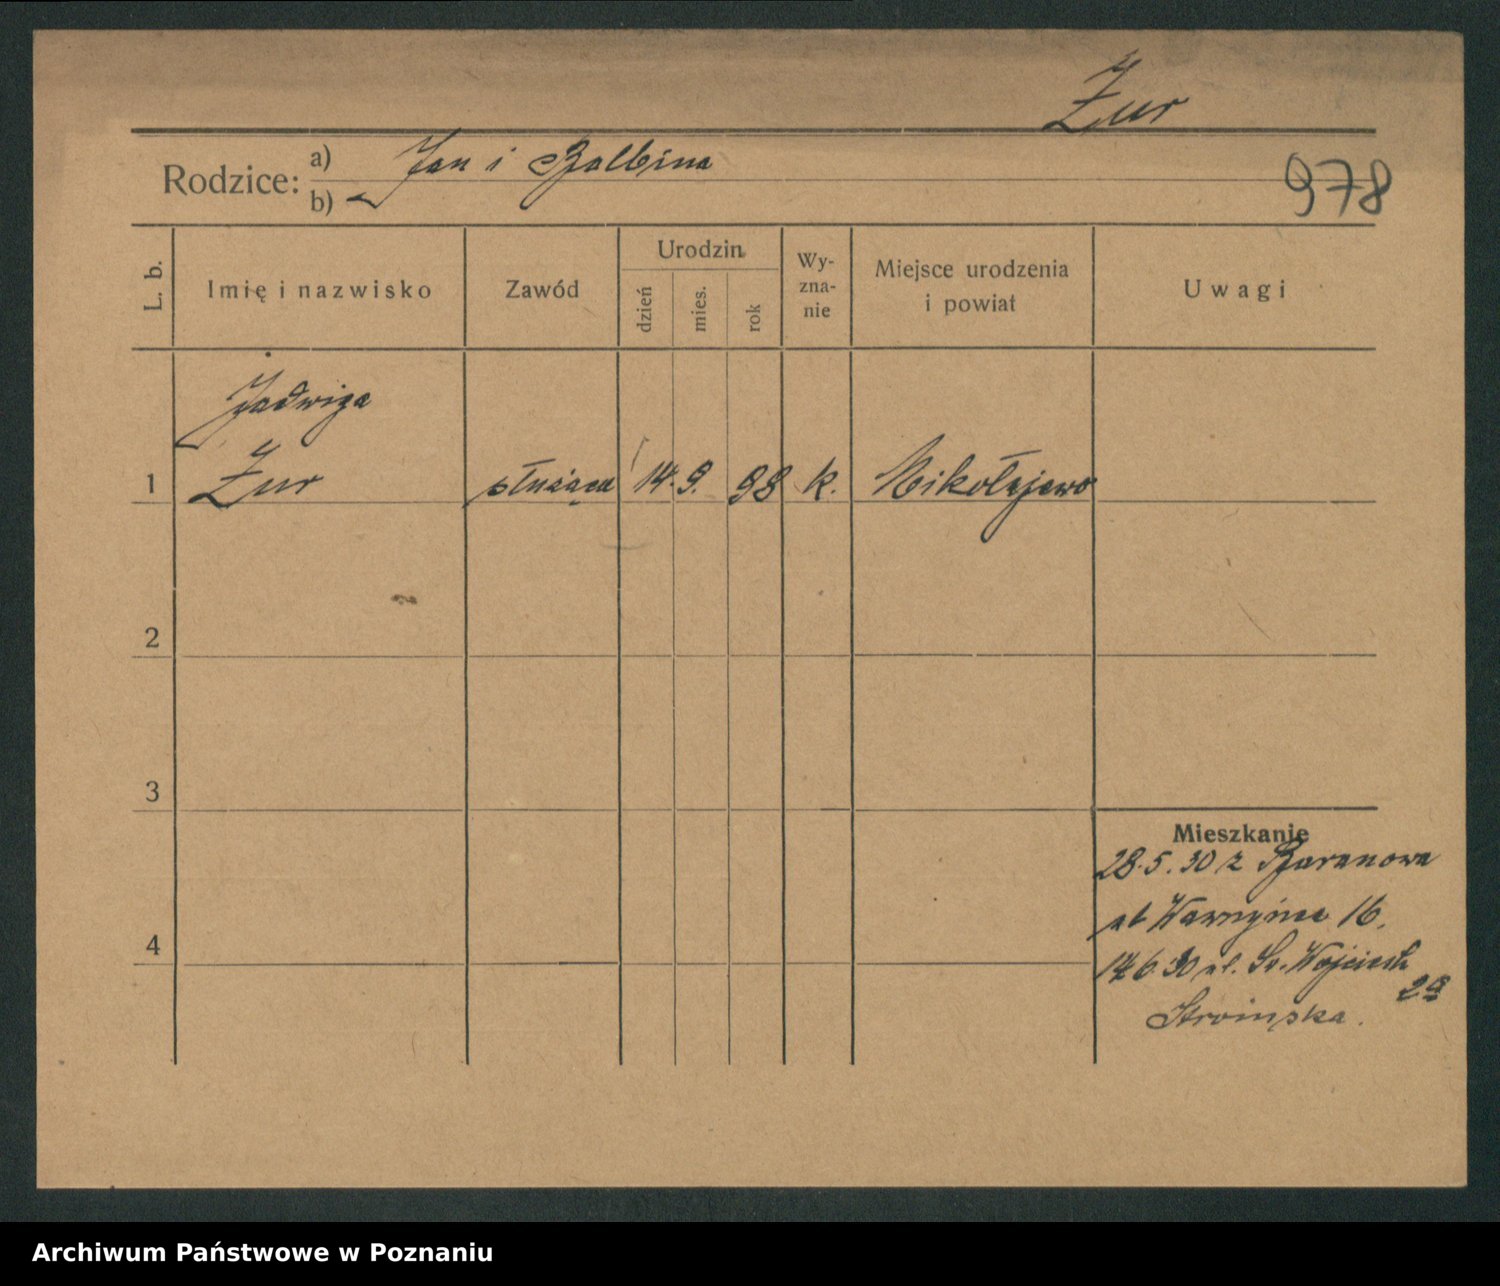 Żur
Rodzice: a) Jan i Balbina
b)
978
L. b.
Imię i nazwisko
Zawód
Urodzin
dzień
mies.
rok
Wy-
zna-
nie
Miejsce urodzenia
i powiat
Uwagi
Jadwiga
1 Żur służąca 14. 9. 98 k. Mikołajewo
2
3
4
Mieszkanie
28.5.30 z Baranowa
ul Wawrzyńca 16.
14.6.30 ul. Św. Wojciech
Stroińska.
Archiwum Państwowe w Poznaniu